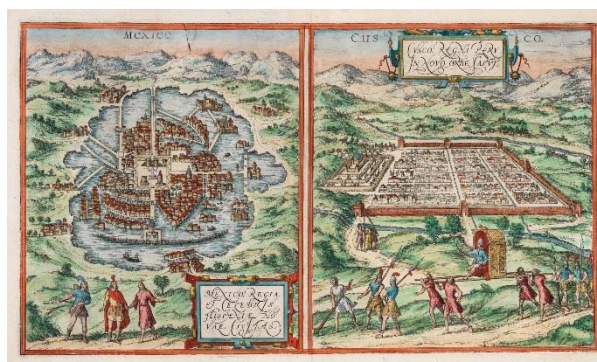 MEXICO
CUS CO.
CVSCO, REGNI PERV
IN NOVO ORBE CAPVT
MEXICO, REGIA
ET CELEBRIS
HISPANIE NO
VAE CIVITAS